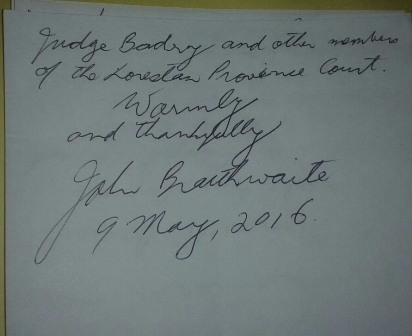 Judge Badry and other members
of the Lorestan Provence Court.
Warmly
and thankfully
John Braithwaite
9 May, 2016.